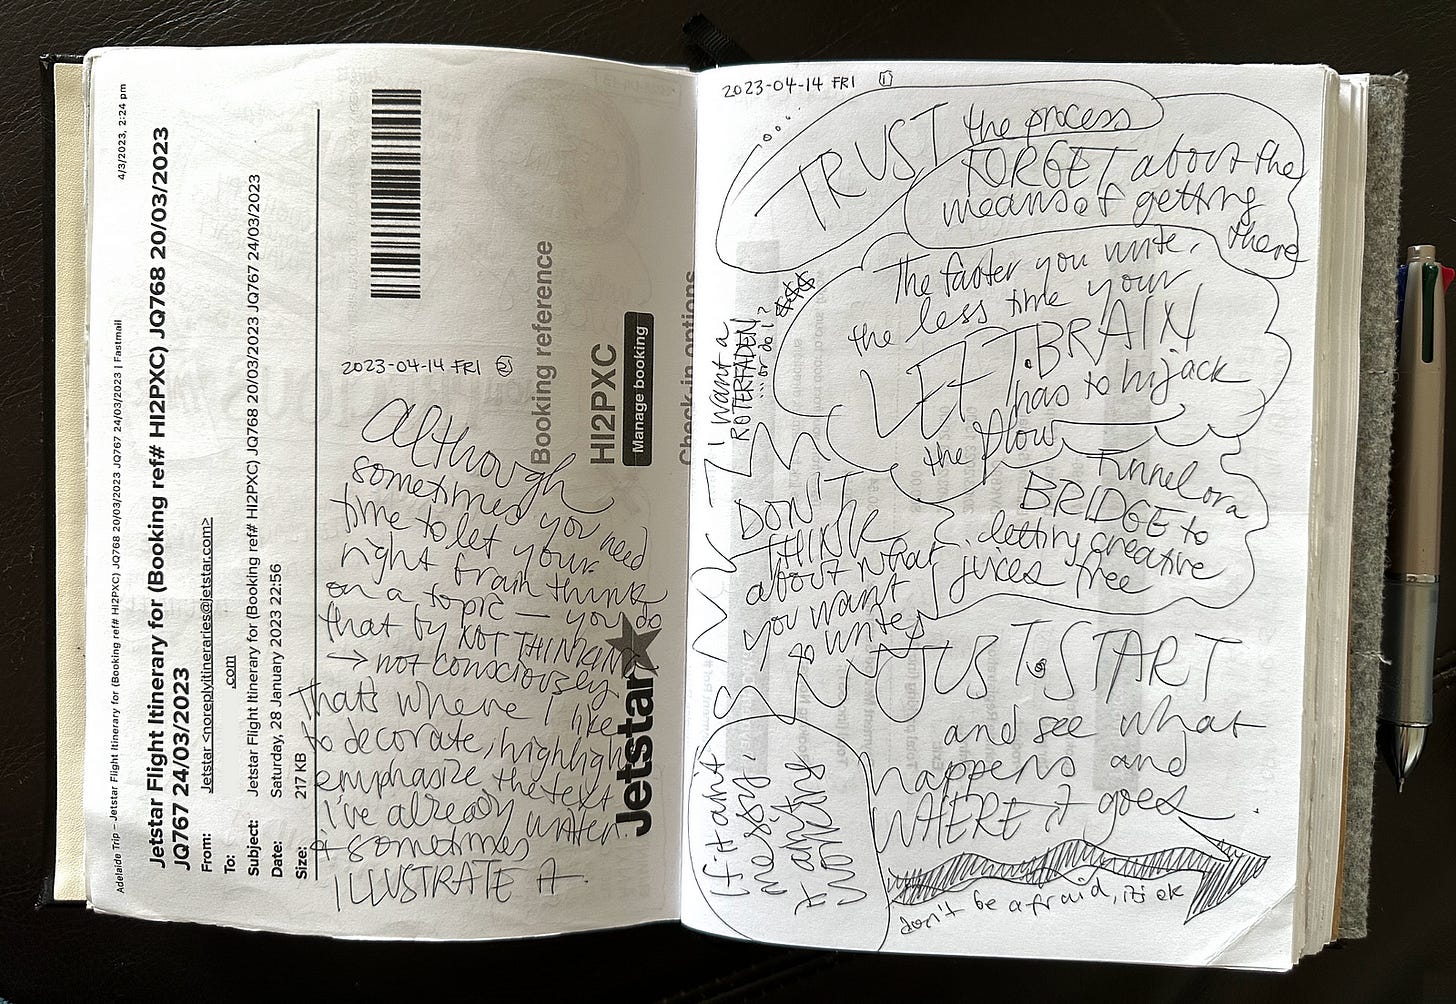 4/3/2023, 2:24 pm
Adelaide Trip – Jetstar Flight Itinerary for (Booking ref# HI2PXC) JQ768 20/03/2023 JQ767 24/03/2023 | Fastmail
Jetstar Flight Itinerary for (Booking ref# HI2PXC) JQ768 20/03/2023
JQ767 24/03/2023
From: Jetstar <noreplyitineraries@jetstar.com>
To: .com
Subject: Jetstar Flight Itinerary for (Booking ref# HI2PXC) JQ768 20/03/2023 JQ767 24/03/2023
Date: Saturday, 28 January 2023 22:56
Size: 217 KB
Booking reference
HI2PXC
Manage booking
Check-in options
Jetstar
2023-04-14 FRI 2
Although
sometimes you need
time to let your
right brain think
on a topic — you do
that by NOT THINKING
→ not consciously.
That's where I like
to decorate, highlight
emphasize the text
I've already written.
& sometimes
ILLUSTRATE it.
2023-04-14 FRI 1
TRUST the process
FORGET about the
means of getting
there
The faster you write,
the less time your
LEFT BRAIN
has to hijack
the flow
I want a
ROTERFADEN
...or do I?
$$$
Funnel or a
BRIDGE to
letting creative
juices free
DON'T
THINK
about what
you want
to write
JUST START
and see what
happens and
WHERE it goes
If it ain't
messy,
it ain't
working
don't be afraid, it's ok